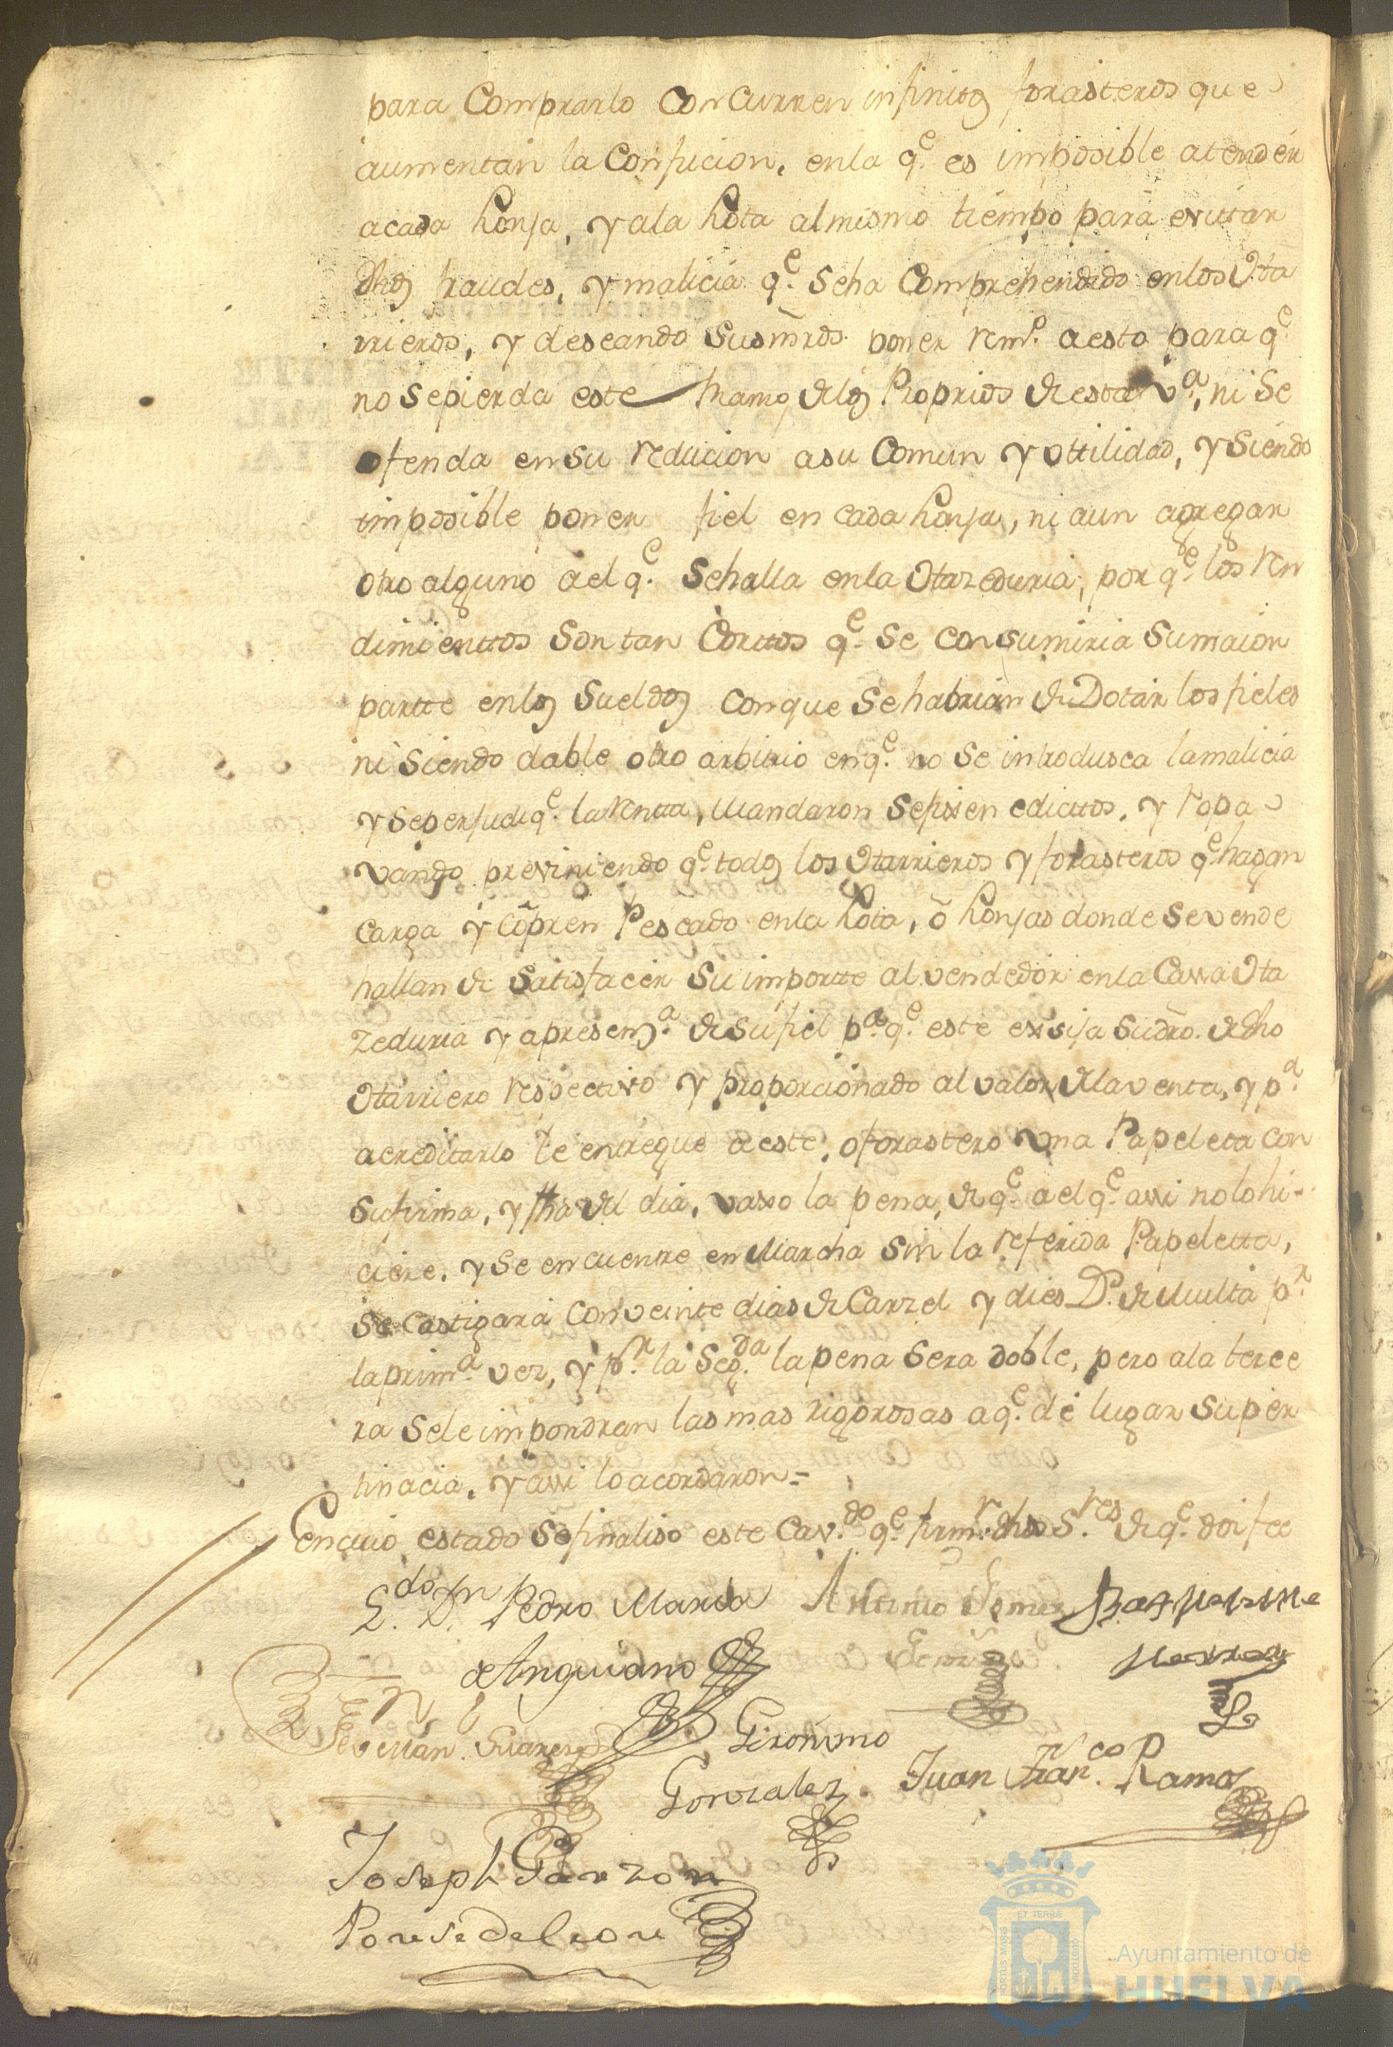 para Comprarlo Concurren infinitos forasteros que
aumentan la Confucion, enla q.e es imposible atender
acada Lonja, y ala Lota almismo tiempo para evittar
dhos fraudes, y malicia q.e seha Comprehendido enlos Ha
rrieros, y deseando Susmrds. poner rem.o aesto para q.e
no sepierda este Ramo de los Proprios de esta V.a, ni Se
ofenda ensu reducion asu Comun y Uttilidad, y Siendo
imposible poner fiel en cada Lonja, ni aun agregar
Otro alguno ael q.e Sehalla enla Hazeduria, por q.e los Ren
dimienttos Son tan Corttos q.e se consumiria Sumaior
partte enlos Sueldos conque Sehabrian de Dotar los fieles
ni Siendo dable otro arbitrio enq.e no se introdusca lamalicia
y Seperjudiq.e la Rentta, Mandaron sefixen edicttos, y
vando previniendo q.e todos los Harrieros y forasteros q.e hagan
Carga y Compren Pescado enla Lota, o Lonjas donde sevende
hallan de Satisfacer Su importte al vendedor enla Cassa Ha
zeduria y apresenz.a de Su fiel p.a q.e este exsija Sudro. de dho
Harriero respectivo y proporcionado al valor de la venta, y p.a
acreditarlo le entregue aeste, o forastero una Papeleta con
Sufirma, y fha del dia, vaxo la pena, de q.e ael q.e assi nolohi-
ciere, y Se encuentre en Marcha Sin la referida Papeletta,
Se Castigará Con veinte dias de Carzel y dies D.s de Multa p.r
laprim.a vez, y p.r la Seg.da lapena Sera doble, pero ala terce
ra Sele impondran las mas rigorosas aq.e dé lugar Su per
tinacia, y assi lo acordaron =
En cuio estado Sefinaliso este Cav.do q.e firm.n dhos S.res de q.e doi fee
L.do Dn Pedro Maria Antonio
de Anguiano
Estevan Suarez Gironimo
Gonzalez Juan Fran.co Ramos
Joseph Garzon
Ponse de Leon
Ayuntamiento de
HUELVA